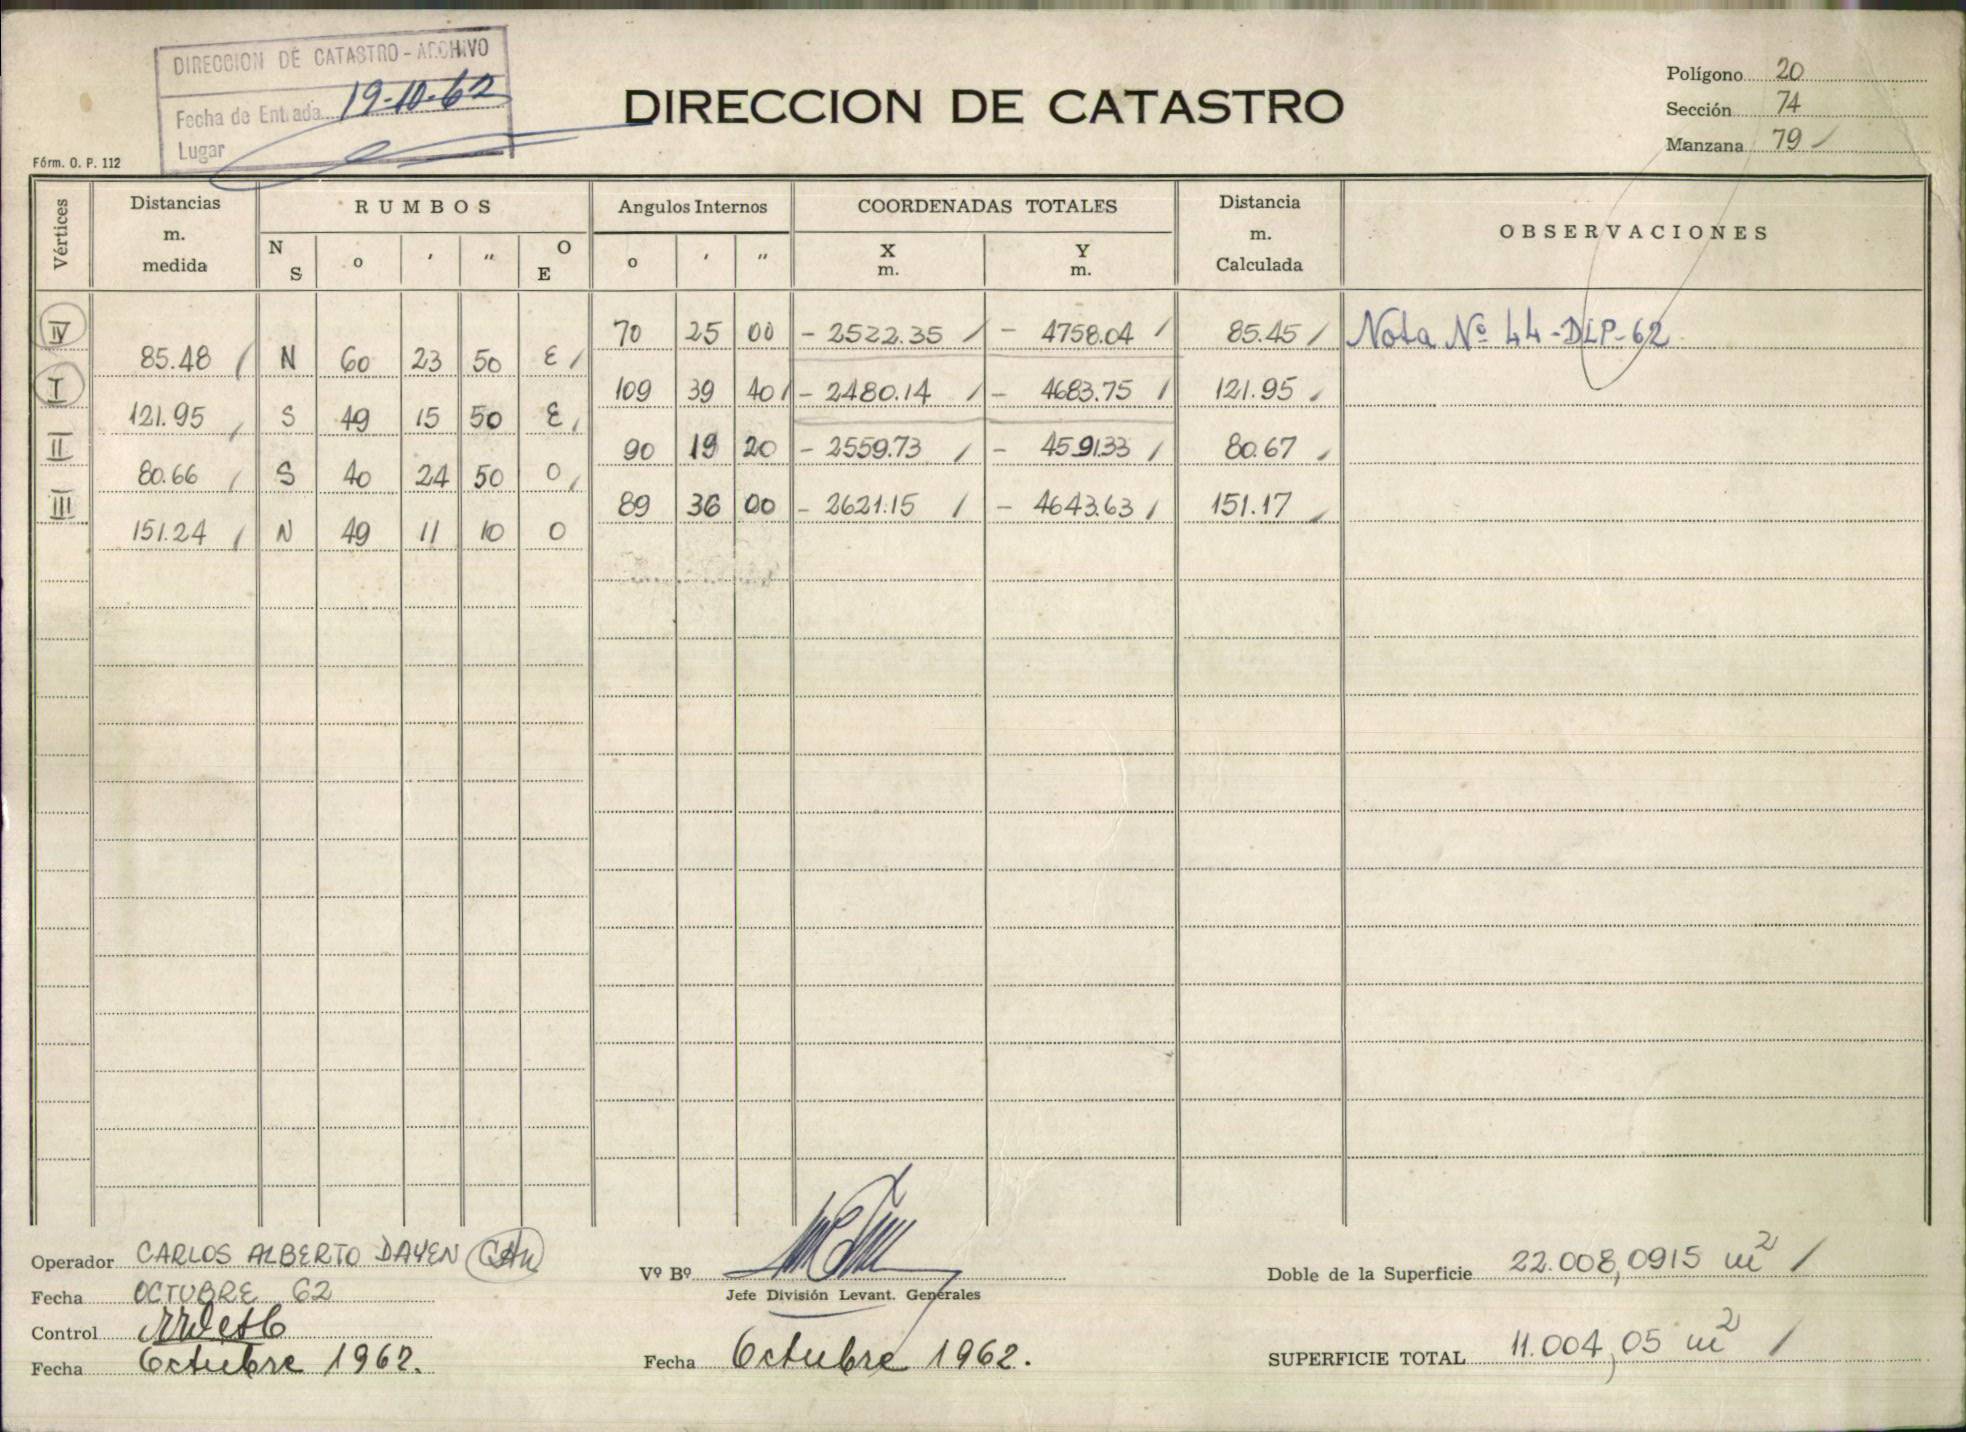 DIRECCION DE CATASTRO - ARCHIVO
Fecha de Entrada 19-10-62
Lugar
Fórm. O. P. 112
DIRECCION DE CATASTRO
Polígono 20
Sección 74
Manzana 79
Vértices
Distancias m. medida
RUMBOS
N S o ' " O E
Angulos Internos
o ' "
COORDENADAS TOTALES
X m. Y m.
Distancia m. Calculada
OBSERVACIONES
IV 70 25 00 - 2522.35 - 4758.04 85.45 Nota Nº 44-DLP-62
85.48 N 60 23 50 E
I 109 39 40 - 2480.14 - 4683.75 121.95
121.95 S 49 15 50 E
II 90 19 20 - 2559.73 - 4591.33 80.67
80.66 S 40 24 50 O
III 89 36 00 - 2621.15 - 4643.63 151.17
151.24 N 49 11 10 O
Operador CARLOS ALBERTO DAYEN
Fecha OCTUBRE 62
Control
Fecha Octubre 1962.
Vº Bº
Jefe División Levant. Generales
Fecha Octubre 1962.
Doble de la Superficie 22.008,0915 m2
SUPERFICIE TOTAL 11.004,05 m2